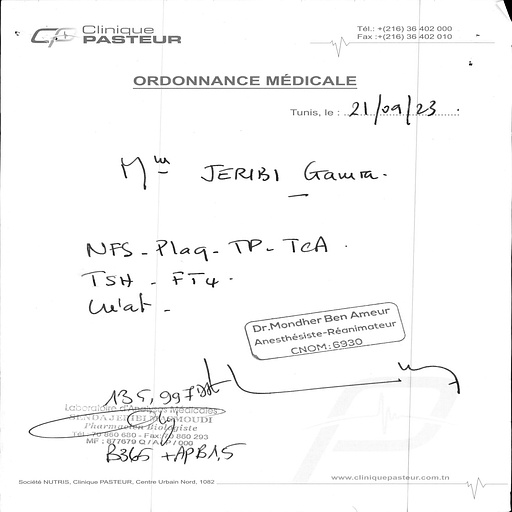 Clinique
PASTEUR
Tél.: +(216) 36 402 000
Fax :+(216) 36 402 010
ORDONNANCE MÉDICALE
Tunis, le : 21/09/23
Mme JERIBI Gamra.
NFS - Plaq - TP - TCA.
TSH - FT4.
Créat -
Dr.Mondher Ben Ameur
Anesthésiste-Réanimateur
CNOM: 6930
135,997
Laboratoire d'Analyses Médicales
Pharmacien Biologiste
MF : 877679 Q / A / P / 000
B365 + APB1,5
Société NUTRIS, Clinique PASTEUR, Centre Urbain Nord, 1082
www.cliniquepasteur.com.tn